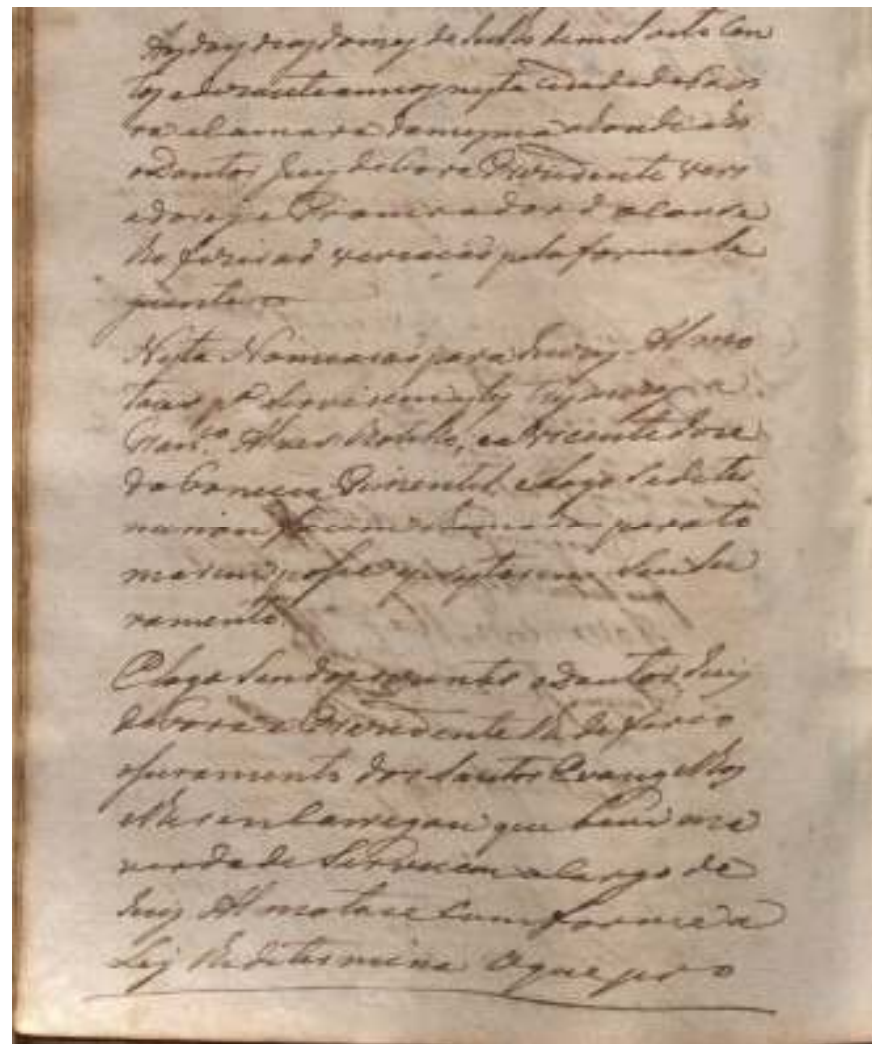 Aos dous dias do mes de Julho de mil oito Cen
tos e vinte annos nesta Cidade de
ra e Camara da mesma a donde o
o Doutor Juiz de Fora Prezidente Vere
adores e o Procurador do Concel
ho fizeraõ vereaçaõ pela forma Se
guinte
Nesta Nomearaõ para Juizes Almo
taces pª Servirem estes tres mezes a
Manoel Alves, e a Vicente Jose
da Fonceca Pimentel, e logo Se deter
minou focem chamados para to
marem poſse e prestarem Seu Ju
ramento
E logo Sendo prezentes o Doutor Juiz
de Fora e Prezidente lhe deferio
o juramento dos Santos Evangelhos
e lhes emcarregou que bem e na
verdade Servicem o Cargo de
Juiz Almotace Comforme a
Ley lhe determina O que pro